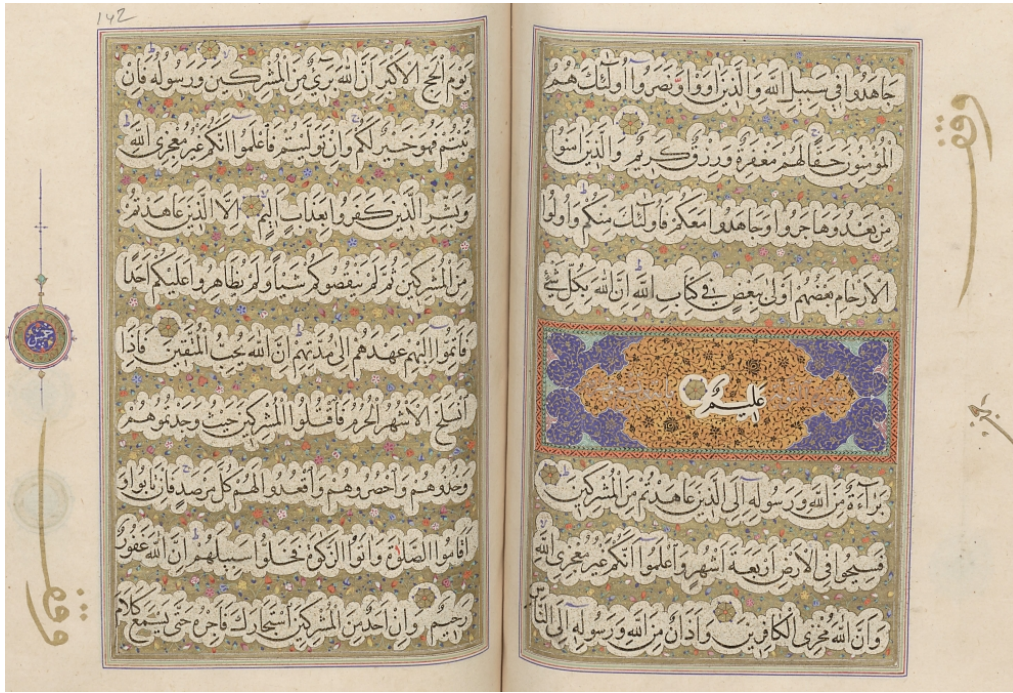 جَاهَدُوا فِي سَبِيلِ اللَّهِ وَالَّذِينَ آوَوا وَنَصَرُوا أُولَٰئِكَ هُمُ
الْمُؤْمِنُونَ حَقًّا لَهُمْ مَغْفِرَةٌ وَرِزْقٌ كَرِيمٌ وَالَّذِينَ آمَنُوا
مِنْ بَعْدُ وَهَاجَرُوا وَجَاهَدُوا مَعَكُمْ فَأُولَٰئِكَ مِنْكُمْ وَأُولُوا
الْأَرْحَامِ بَعْضُهُمْ أَوْلَىٰ بِبَعْضٍ فِي كِتَابِ اللَّهِ إِنَّ اللَّهَ بِكُلِّ شَيْءٍ
عَلِيمٌ
بَرَاءَةٌ مِنَ اللَّهِ وَرَسُولِهِ إِلَى الَّذِينَ عَاهَدْتُمْ مِنَ الْمُشْرِكِينَ
فَسِيحُوا فِي الْأَرْضِ أَرْبَعَةَ أَشْهُرٍ وَاعْلَمُوا أَنَّكُمْ غَيْرُ مُعْجِزِي اللَّهِ
وَأَنَّ اللَّهَ مُخْزِي الْكَافِرِينَ وَأَذَانٌ مِنَ اللَّهِ وَرَسُولِهِ إِلَى النَّاسِ
وقف
142
يَوْمَ الْحَجِّ الْأَكْبَرِ أَنَّ اللَّهَ بَرِيءٌ مِنَ الْمُشْرِكِينَ وَرَسُولُهُ فَإِنْ
تُبْتُمْ فَهُوَ خَيْرٌ لَكُمْ وَإِنْ تَوَلَّيْتُمْ فَاعْلَمُوا أَنَّكُمْ غَيْرُ مُعْجِزِي اللَّهِ
وَبَشِّرِ الَّذِينَ كَفَرُوا بِعَذَابٍ أَلِيمٍ إِلَّا الَّذِينَ عَاهَدْتُمْ
مِنَ الْمُشْرِكِينَ ثُمَّ لَمْ يَنْقُصُوكُمْ شَيْئًا وَلَمْ يُظَاهِرُوا عَلَيْكُمْ أَحَدًا
فَأَتِمُّوا إِلَيْهِمْ عَهْدَهُمْ إِلَىٰ مُدَّتِهِمْ إِنَّ اللَّهَ يُحِبُّ الْمُتَّقِينَ فَإِذَا
انْسَلَخَ الْأَشْهُرُ الْحُرُمُ فَاقْتُلُوا الْمُشْرِكِينَ حَيْثُ وَجَدْتُمُوهُمْ
وَخُذُوهُمْ وَاحْصُرُوهُمْ وَاقْعُدُوا لَهُمْ كُلَّ مَرْصَدٍ فَإِنْ تَابُوا وَ
أَقَامُوا الصَّلَوٰةَ وَآتَوُا الزَّكَوٰةَ فَخَلُّوا سَبِيلَهُمْ إِنَّ اللَّهَ غَفُورٌ
رَحِيمٌ وَإِنْ أَحَدٌ مِنَ الْمُشْرِكِينَ اسْتَجَارَكَ فَأَجِرْهُ حَتَّىٰ يَسْمَعَ كَلَامَ
وقف